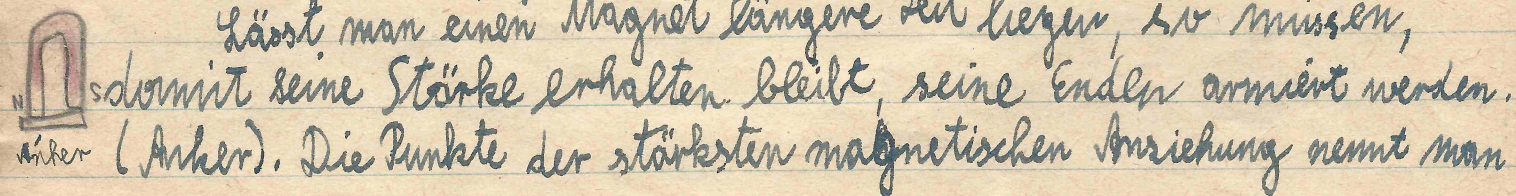 Lässt man einen Magnet längere Zeit liegen, so müssen,
N S damit seine Stärke erhalten bleibt, seine Enden armiert werden.
Anker (Anker). Die Punkte der stärksten magnetischen Anziehung nennt man